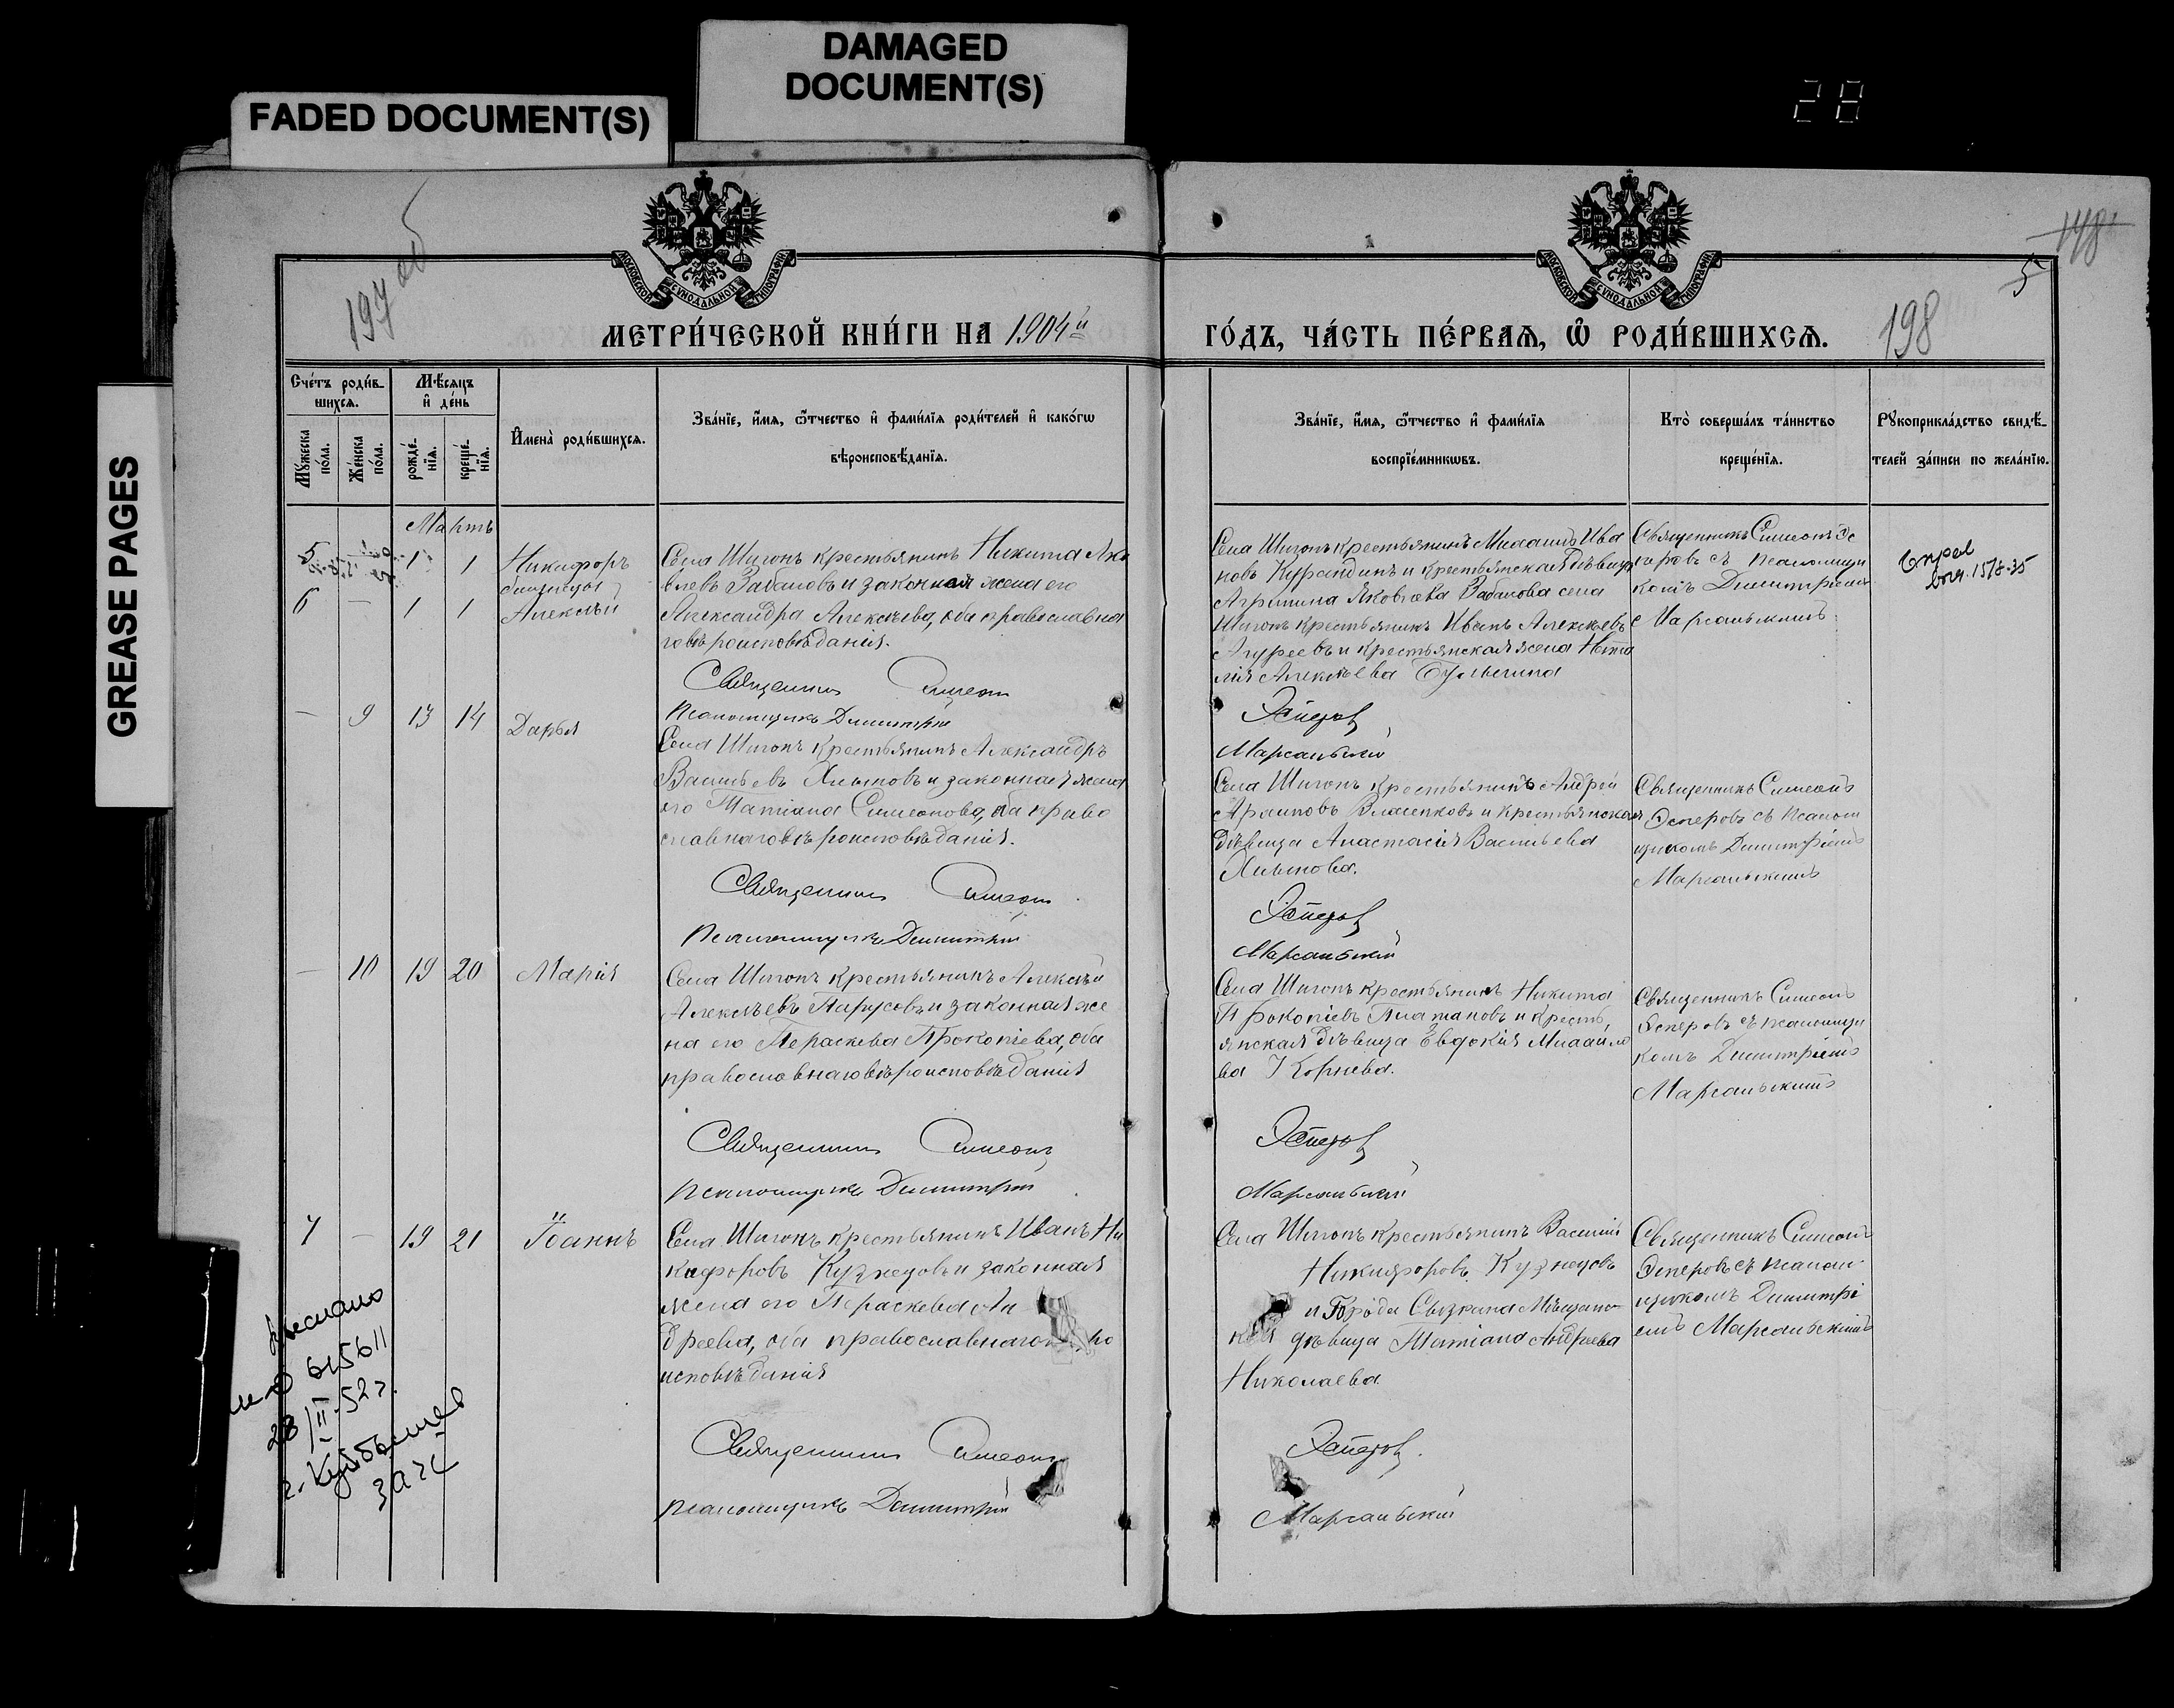 DAMAGED
DOCUMENT(S)
FADED DOCUMENT(S)
GREASE PAGES
28
197 об
148
5
198
МОСКОВСКОЙ СѴНОДАЛЬНОЙ ТИПОГРАФІИ
МОСКОВСКОЙ СѴНОДАЛЬНОЙ ТИПОГРАФІИ
МЕТРИ́ЧЕСКОЙ КНИ́ГИ НА 1904й
ГО́ДЪ, ЧА́СТЬ ПЕ́РВАѦ, Ѽ РОДИ́ВШИХСѦ.
Сче́тъ роди́в-
шихсѧ.
Мѣ́сѧцъ
и҆ де́нь
Мꙋ́жеска
по́ла.
Же́нска
по́ла.
рожде́-
нїѧ.
креще́-
нїѧ.
И҆мена̀ роди́вшихсѧ.
Зва́нїе, и҆́мѧ, ѻ҆́тчество и҆ фами́лїѧ роди́телей и҆ како́гѡ
вѣроисповѣ́данїѧ.
Зва́нїе, и҆́мѧ, ѻ҆́тчество и҆ фами́лїѧ
воспрїе́мникѡвъ.
Кто̀ соверша́лъ та́инство
креще́нїѧ.
Рꙋкоприкла́дство свидѣ́-
телей за́писи по жела́нїю.
Мартъ
5 1 1 Никифоръ
близнецы
6 — 1 1 Алексѣй
Села Шигонъ крестьянинъ Никита Яко
влевъ Забановъ и законная жена его
Александра Алексѣева, оба православна
го вѣроисповѣданія.
Священникъ Симеонъ
Псаломщикъ Димитрій
Села Шигонъ крестьянинъ Михаилъ Ива
новъ Курандинъ и крестьянская дѣвица
Агрипина Яковлева Забанова села
Шигонъ крестьянинъ Иванъ Алексѣевъ
и крестьянская жена Ната
лія Алексѣева
Эсперовъ
Марсальскій
Священникъ Симеонъ Эс
перовъ съ псаломщи
комъ Димитріемъ
Марсальскимъ.
— 9 13 14 Дарья
Села Шигонъ крестьянинъ Александръ
Васильевъ Хлыновъ и законная жена
его Татіана Симеонова, оба право
славнаго вѣроисповѣданія.
Священникъ Симеонъ
Псаломщикъ Димитрій
Села Шигонъ крестьянинъ Андрей
Власенковъ и крестьянская
дѣвица Анастасія Васильева
Хлынова.
Эсперовъ
Марсальскій
Священникъ Симеонъ
Эсперовъ съ псалом
щикомъ Димитріемъ
Марсальскимъ
— 10 19 20 Марія
Села Шигонъ крестьянинъ Алексѣй
Алексѣевъ Парусовъ и законная же
на его Параскева Прокопіева, оба
православнаго вѣроисповѣданія
Священникъ Симеонъ
Псаломщикъ Димитрій
Села Шигонъ крестьянинъ Никита
Прокопіевъ Платановъ и кресть
янская дѣвица Евдокія Михаило
ва Корнева.
Эсперовъ
Марсальскій
Священникъ Симеонъ
Эсперовъ съ псаломщи
комъ Димитріемъ
Марсальскимъ
7 — 19 21 Іоаннъ
Села Шигонъ крестьянинъ Иванъ Ни
кифоровъ Кузнецовъ и законная
жена его Параскева Ан
дреева, оба православнаго
исповѣданія
Священникъ Симеонъ
псаломщикъ Димитрій
Села Шигонъ крестьянинъ Василій
Никифоровъ Кузнецовъ
и Города Сызрана Мѣщанс
кая дѣвица Татіана Андреева
Николаева
Эсперовъ.
Марсальскій
Священникъ Симеонъ
Эсперовъ съ псалом
щикомъ Димитрі
емъ Марсальскимъ
615611
28/II-52 г.
г. Куйбышев
загс
15/8-35